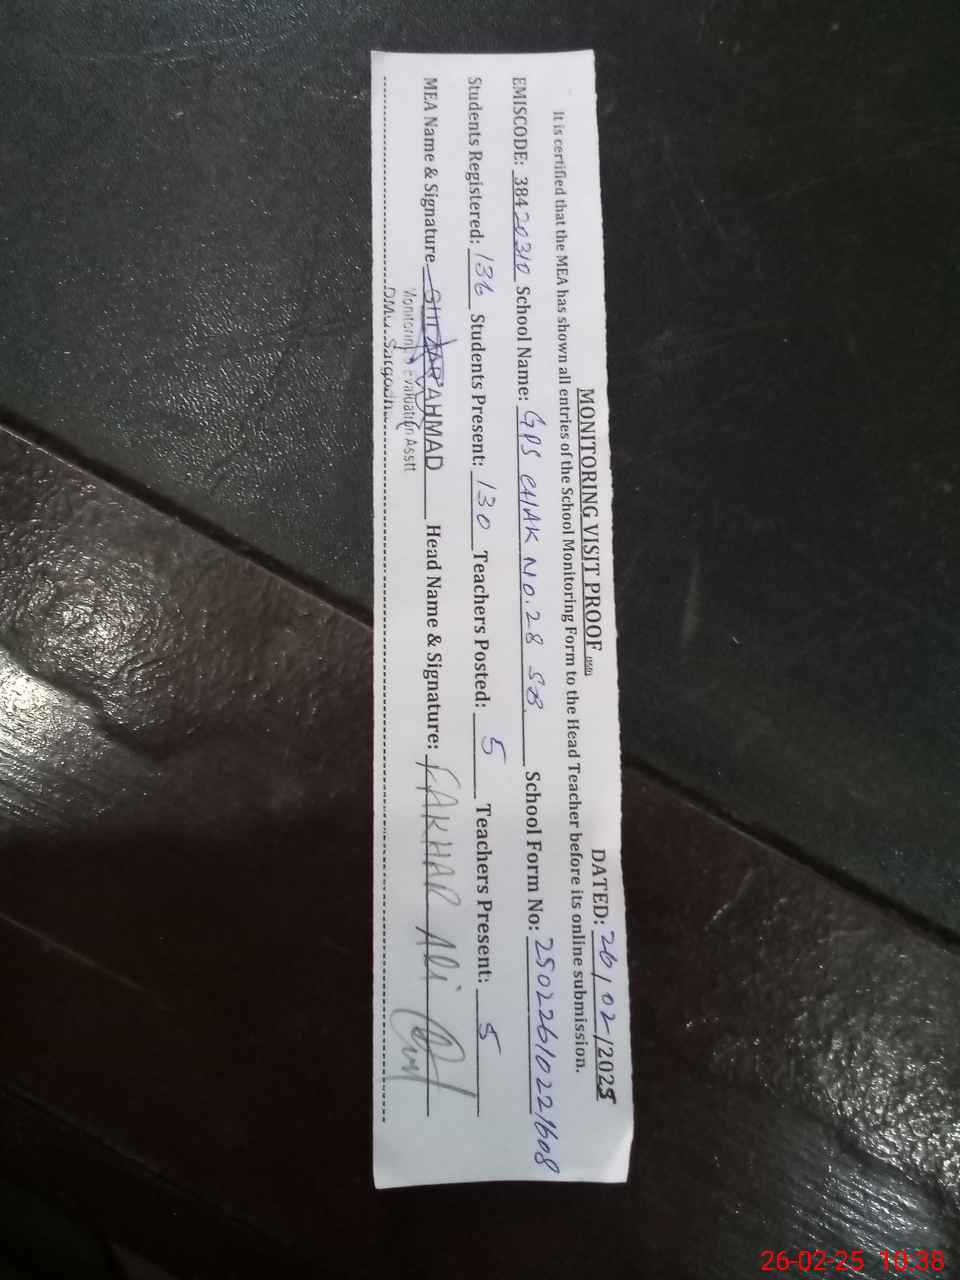 MONITORING VISIT PROOF (SSD)
DATED: 26/02/2025
It is certified that the MEA has shown all entries of the School Monitoring Form to the Head Teacher before its online submission.
EMISCODE: 38420310 School Name: GPS CHAK NO.28 SB School Form No: 25022610221608
Students Registered: 136 Students Present: 130 Teachers Posted: 5 Teachers Present: 5
MEA Name & Signature AHMAD Head Name & Signature: FAKHAR Ali
Monitoring & Evaluation Asstt
DMO. Sargodh
26-02-25 10:38